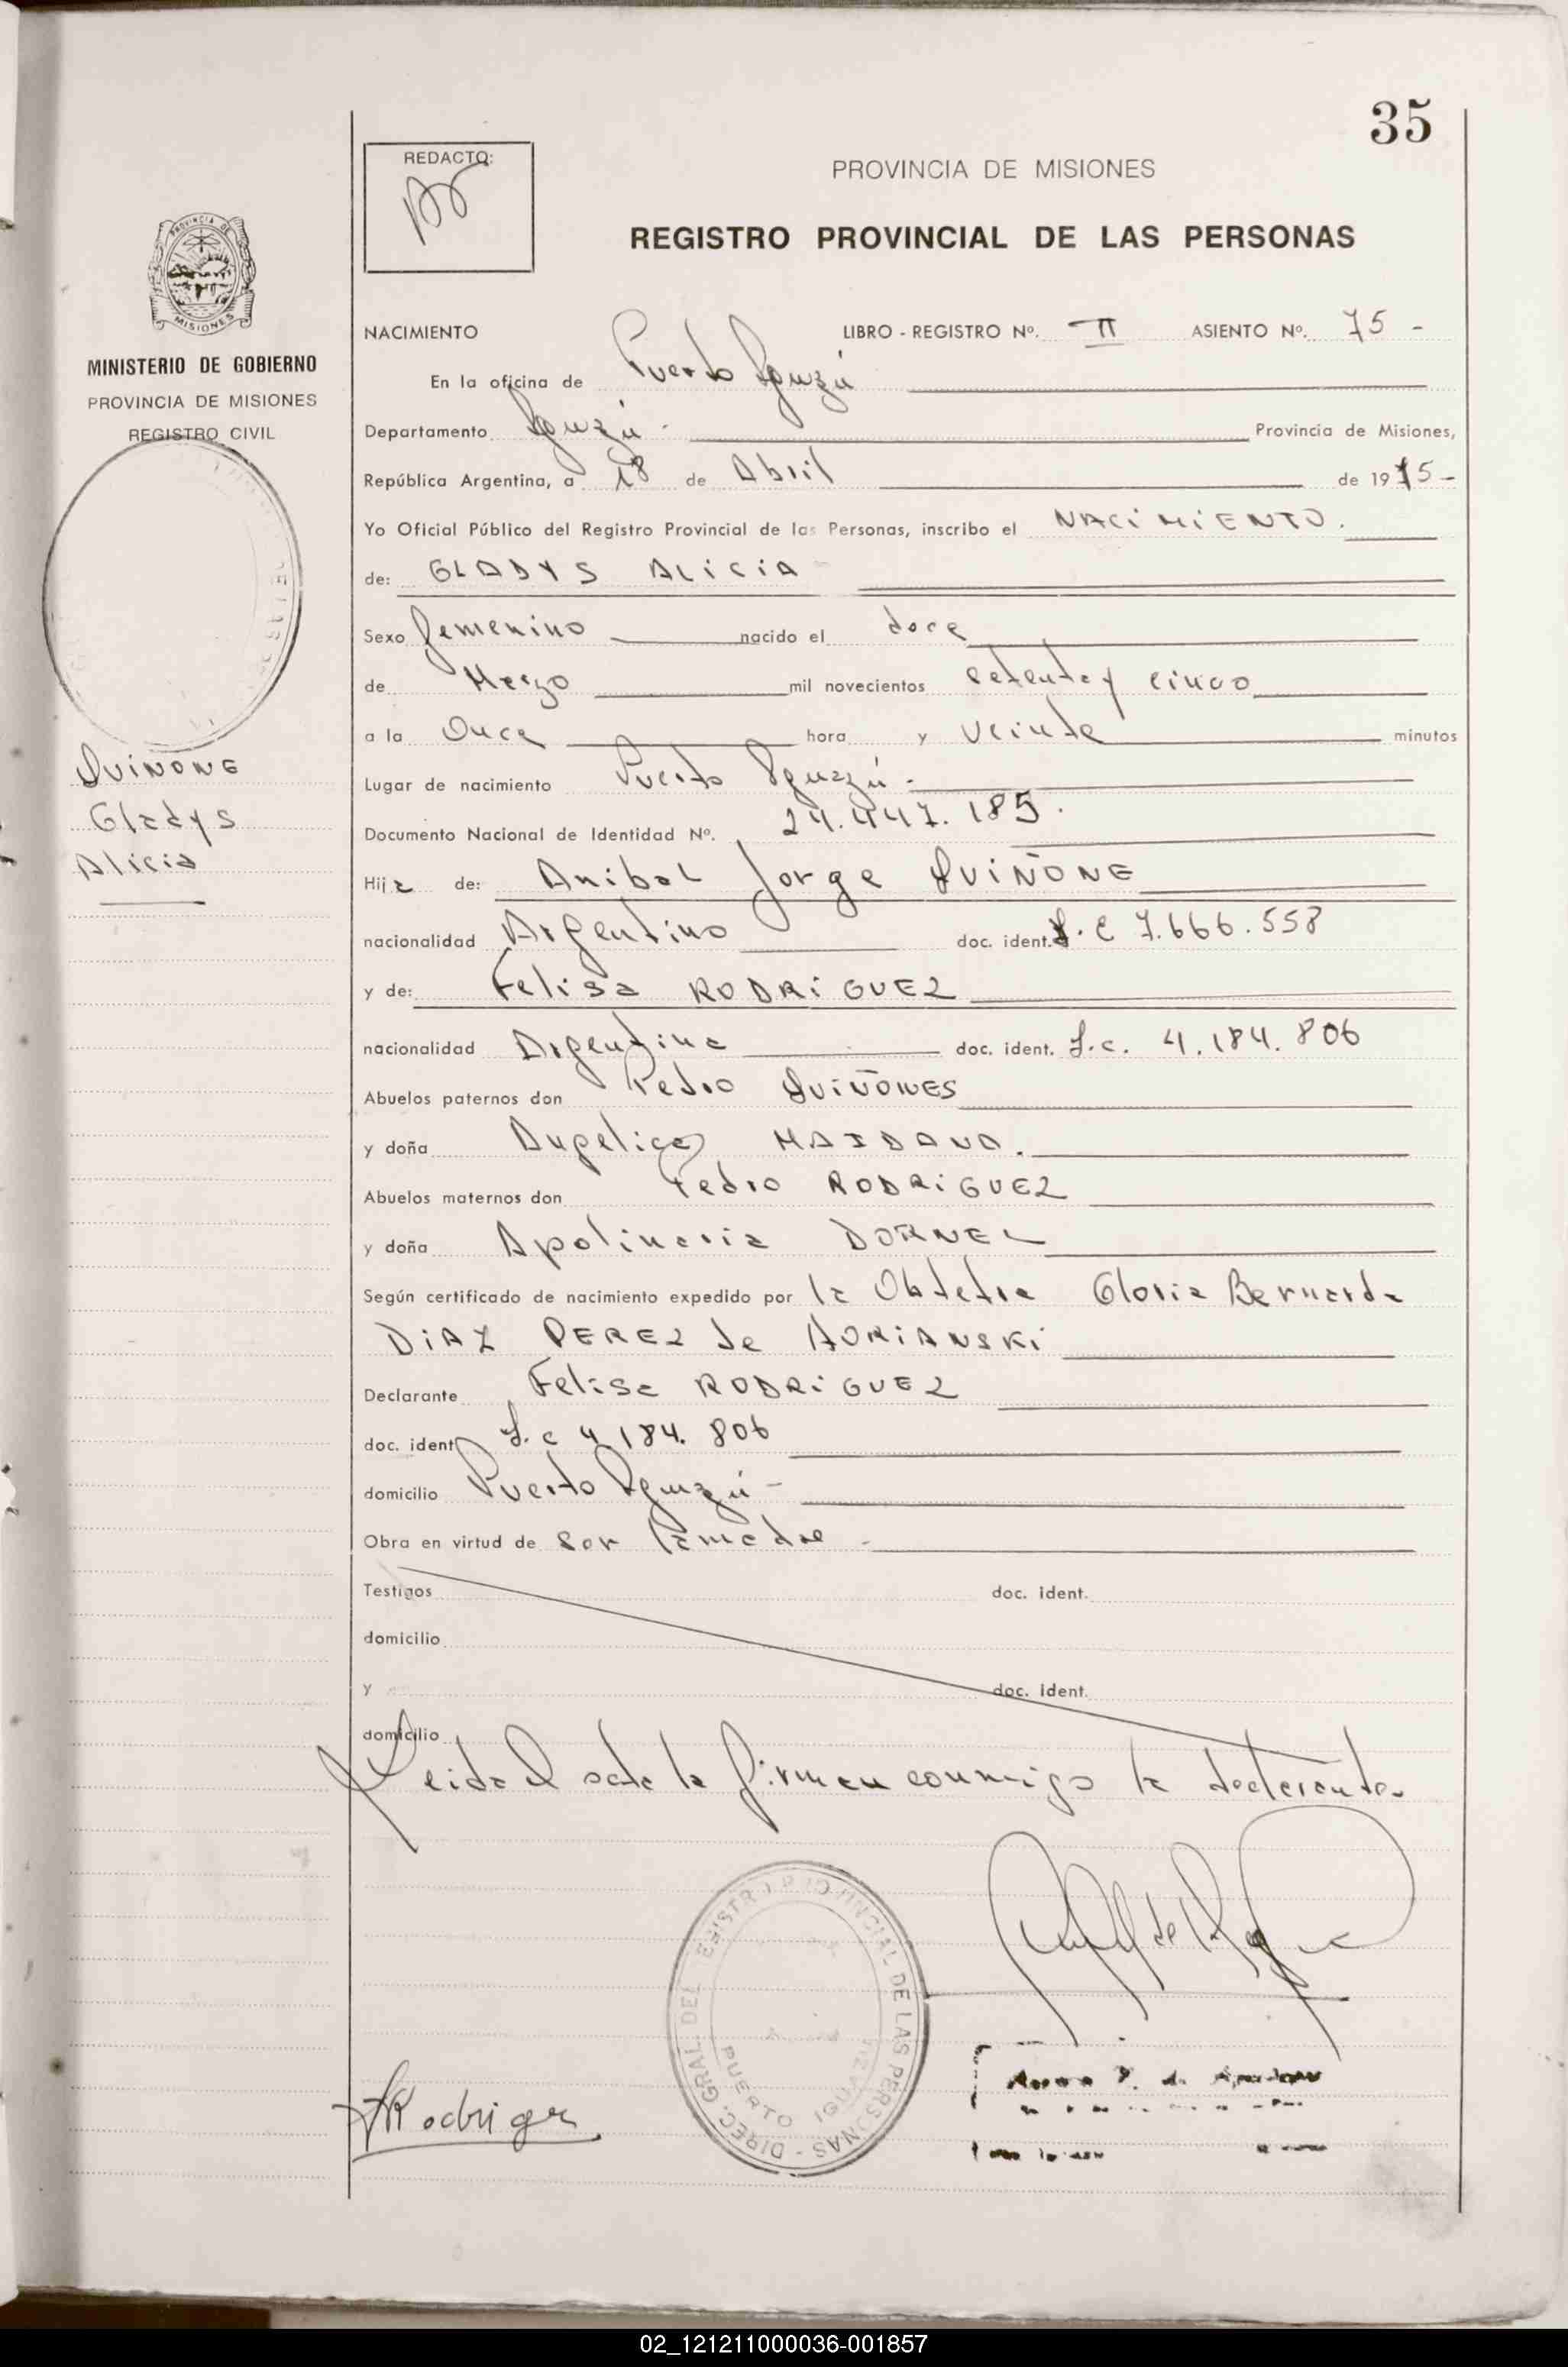 35
REDACTO:
PROVINCIA DE MISIONES
REGISTRO PROVINCIAL DE LAS PERSONAS
PROVINCIA DE MISIONES
MINISTERIO DE GOBIERNO
PROVINCIA DE MISIONES
REGISTRO CIVIL
QUIÑONE
Gladys
Alicia
NACIMIENTO LIBRO - REGISTRO Nº. II ASIENTO Nº. 75 -
En la oficina de Puerto Iguazú
Departamento Iguazú - Provincia de Misiones,
República Argentina, a 18 de Abril de 1975 -
Yo Oficial Público del Registro Provincial de las Personas, inscribo el NACIMIENTO.
de: GLADYS ALICIA
Sexo femenino nacido el doce
de Marzo mil novecientos setenta y cinco
a la Once hora y veinte minutos
Lugar de nacimiento Puerto Iguazú -
Documento Nacional de Identidad Nº. 24.447.185.
Hija de: Anibal Jorge QUIÑONE
nacionalidad Argentino doc. ident. L.E 7.666.558
y de: Felisa RODRiGUEZ
nacionalidad Argentina doc. ident. L.c. 4.184.806
Abuelos paternos don Pedro QUIÑONES
y doña Angelica MAIDANA.
Abuelos maternos don Pedro RODRiGUEZ
y doña Apolinaria DORNEL
Según certificado de nacimiento expedido por la Obtetra Gloria Bernarda
DiAZ PEREZ de ADRIANSKi
Declarante Felisa RODRiGUEZ
doc. ident L.c 4.184.806
domicilio Puerto Iguazú -
Obra en virtud de ser la madre -
Testigos doc. ident.
domicilio
y doc. ident.
domicilio
Leida el acta la firman conmigo la declarante.
DIREC. GRAL. DEL REGISTRO PROVINCIAL DE LAS PERSONAS -
PUERTO IGUAZU
FRodriguez
02_121211000036-001857